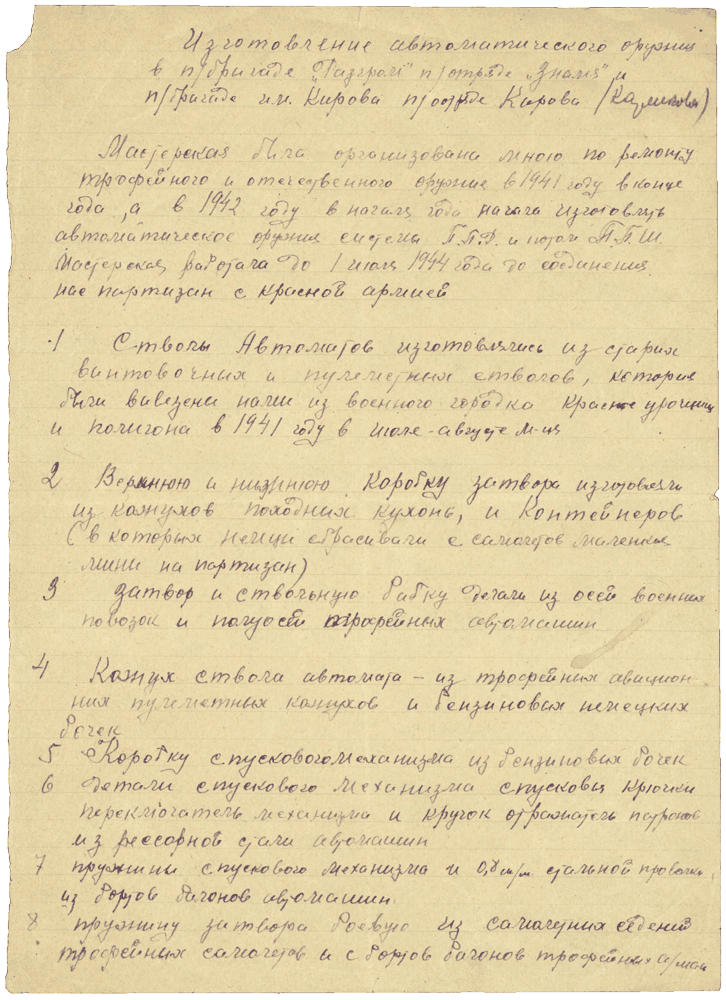 Изготовление автоматического оружия
в п/бригаде „Разгром" п/отряде „Знамя" и
п/бригаде им. Кирова п/отряде Кирова
Мастерская была организована мною по ремонту
трофейного и отечественного оружие в 1941 году в конце
года, а в 1942 году в начале года начала изготовлять
автоматическое оружия система П.П.Д. и потом П.П.Ш.
Мастерская работала до 1 июля 1944 года до соединения
нас партизан с красной армией
1 Стволы Автоматов изготовлялись из старих
винтовочных и пулеметных стволов, котория
были вивезени нами из военного городка Красное урочище
и полигона в 1941 году в июле-августе м-ця
2 Верхнюю и нижнюю коробку затвора изготовляли
из кожухов походних кухонь, и Контейнеров
(в которых немци сбрасивали с самолетов маленкия
мини на партизан)
3 Затвор и ствольную бабку делали из осей военних
повозок и полуосей трофейных автомашин
4 Кожух ствола автомата – из трофейних авиацион-
них пулеметных кожухов и бензинових немецких
бочек
5 Коробку спускового механизма из бензинових бочек
6 Детали спускового механизма спусковия крючки
переключатель механизма и кручок отражатель патронов
из рессорной стали автомашин
7 пружини спускового механизма и 0,8 м/м. стальной проволки
из бортов балонов автомашин.
8 пружину затвора боевую из самолетних сидений
трофейных самолетов и с бортов балонов трофейных а/маш